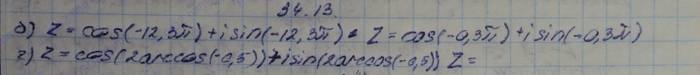 34.13.
б) Z = cos(-12,3π) + i sin(-12,3π) = Z = cos(-0,3π) + i sin(-0,3π)
г) Z = cos(2arccos(-0,5)) + i sin(2arccos(-0,5)) Z =